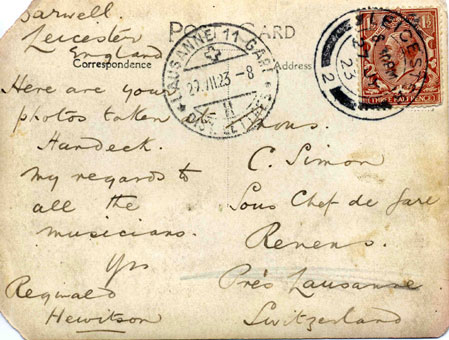 Barwell.
Leicester
England
POST CARD
Correspondence
Address
LAUSANNE 11 GARE
22.VII.23-8
DIST. LETTRES
LEICESTER
23
2
THREE HALFPENCE
Here are your
photos taken
Handeck.
My regards to
all the
musicians.
Yrs
Reginald
Hewitson
Mons.
C. Simon
Sous Chef de Gare
Renens.
Près Lausanne
Switzerland